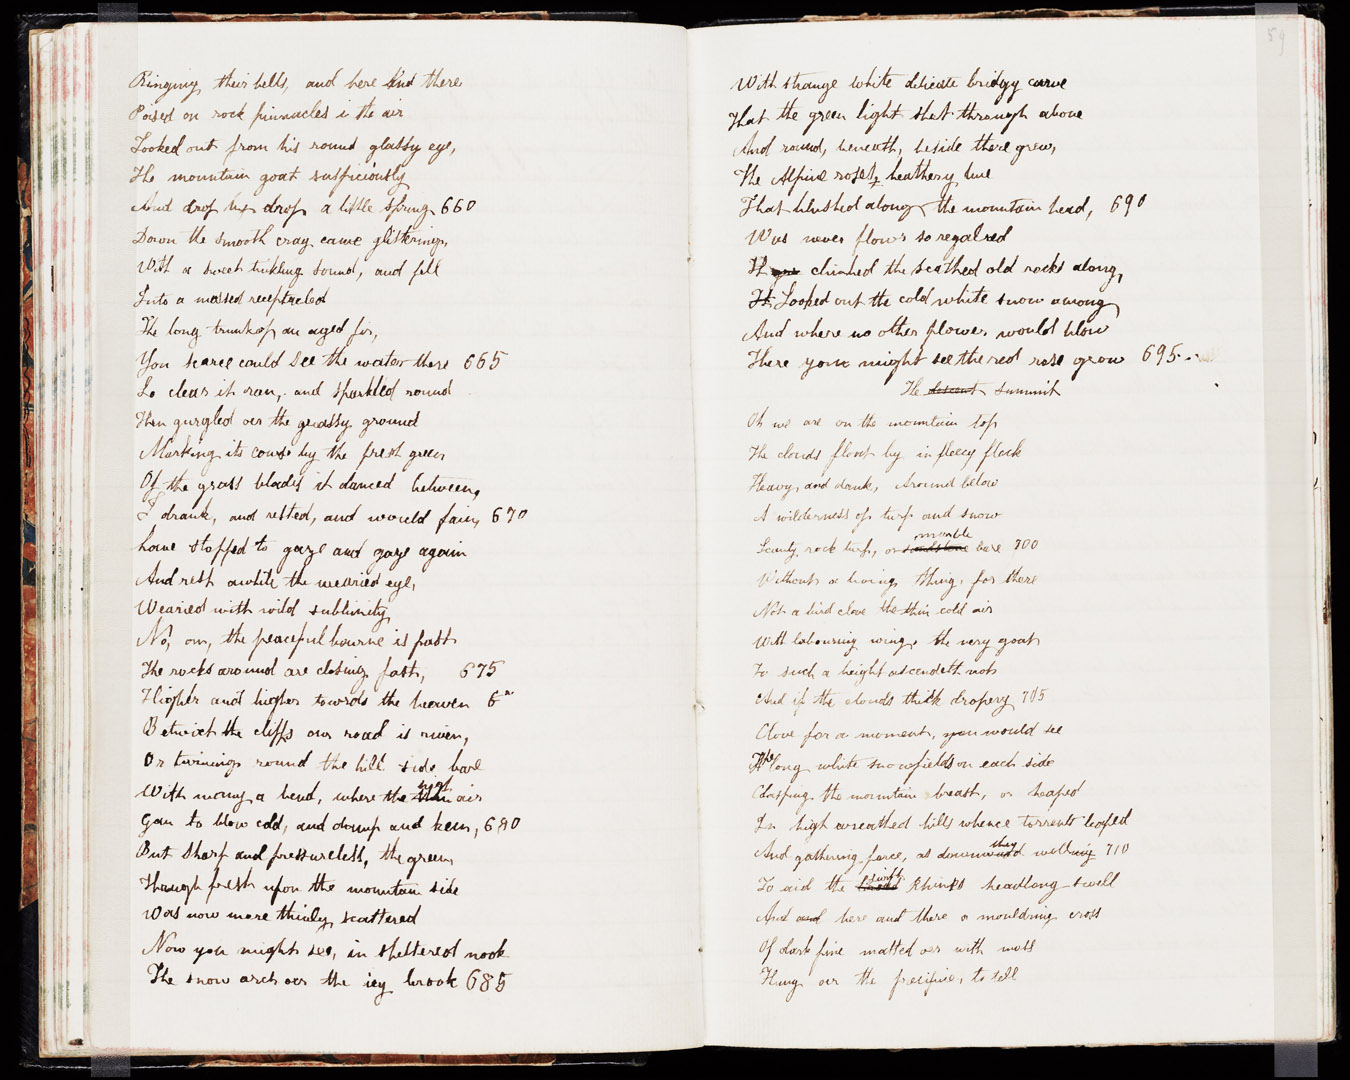 Ringing their bells, and here and there
Poised on rock pinnacles i the air
Looked out from his round glassy eye,
The mountain goat suspiciously
And drop by drop a little spring 660
Down the smooth crag came glittering,
With a sweet tinkling sound, and fell
Into a mossed receptacled
The long trunk of an aged fir,
You scarce could see the water there 665
So clear it ran, and sparkled round
Then gurgled oer the grassy ground
Marking its course by the fresh green
Of the grass blades it danced between,
I drank, and rested, and would fain, 670
have stopped to gaze and gaze again
And rest awhile the wearied eye,
Wearied with wild sublimity
No, on, the peaceful bourne is past
The rocks around are closing fast, 675
Higher and higher towards the heaven 6
Betwixt the cliffs our road is riven,
Or twining round the hill side bare
nigt
With many a bend, where the thin air
Gan to blow cold, and damp and keen, 680
But sharp and pressureless, the green,
Though fresh upon the mountain side
Was now more thinly scattered
Now you might see, in sheltered nook
The snow arch oer the icy brook 685
59
With strange white delicate bridgy curve
That the green light shot through above
And round, beneath, beside there grew,
The Alpine roses heathery hue
That blushed along the mountain head, 690
Was never flower so regal red
It climbed the scathed old rocks along,
It Looked out the cold white snow among
And where no other flower would blow
There you might see the red rose grow 695
The descent summit
Oh we are on the mountain top
The clouds float by in fleecy flock
Heavy, and dank, Around below
A wilderness of turf and snow
marble
Scanty rock turf, or sandstone bare 700
Without a living thing, for there
Not a bird clove the thin cold air
With labouring wing, the very goat
To such a height ascendeth not
And if the clouds thick drapery 705
Clove for a moment, you would see
The long white snowfields on each side
Clasping the mountain breast, or heaped
In high wreathed hills whence torrents leaped
they
And gathering force, as downward welling 710
swift
To aid the Rhine's headlong swell
And and here and there a mouldring cross
Of dark pine matted oer with moss
Hung oer the precipice, to tell